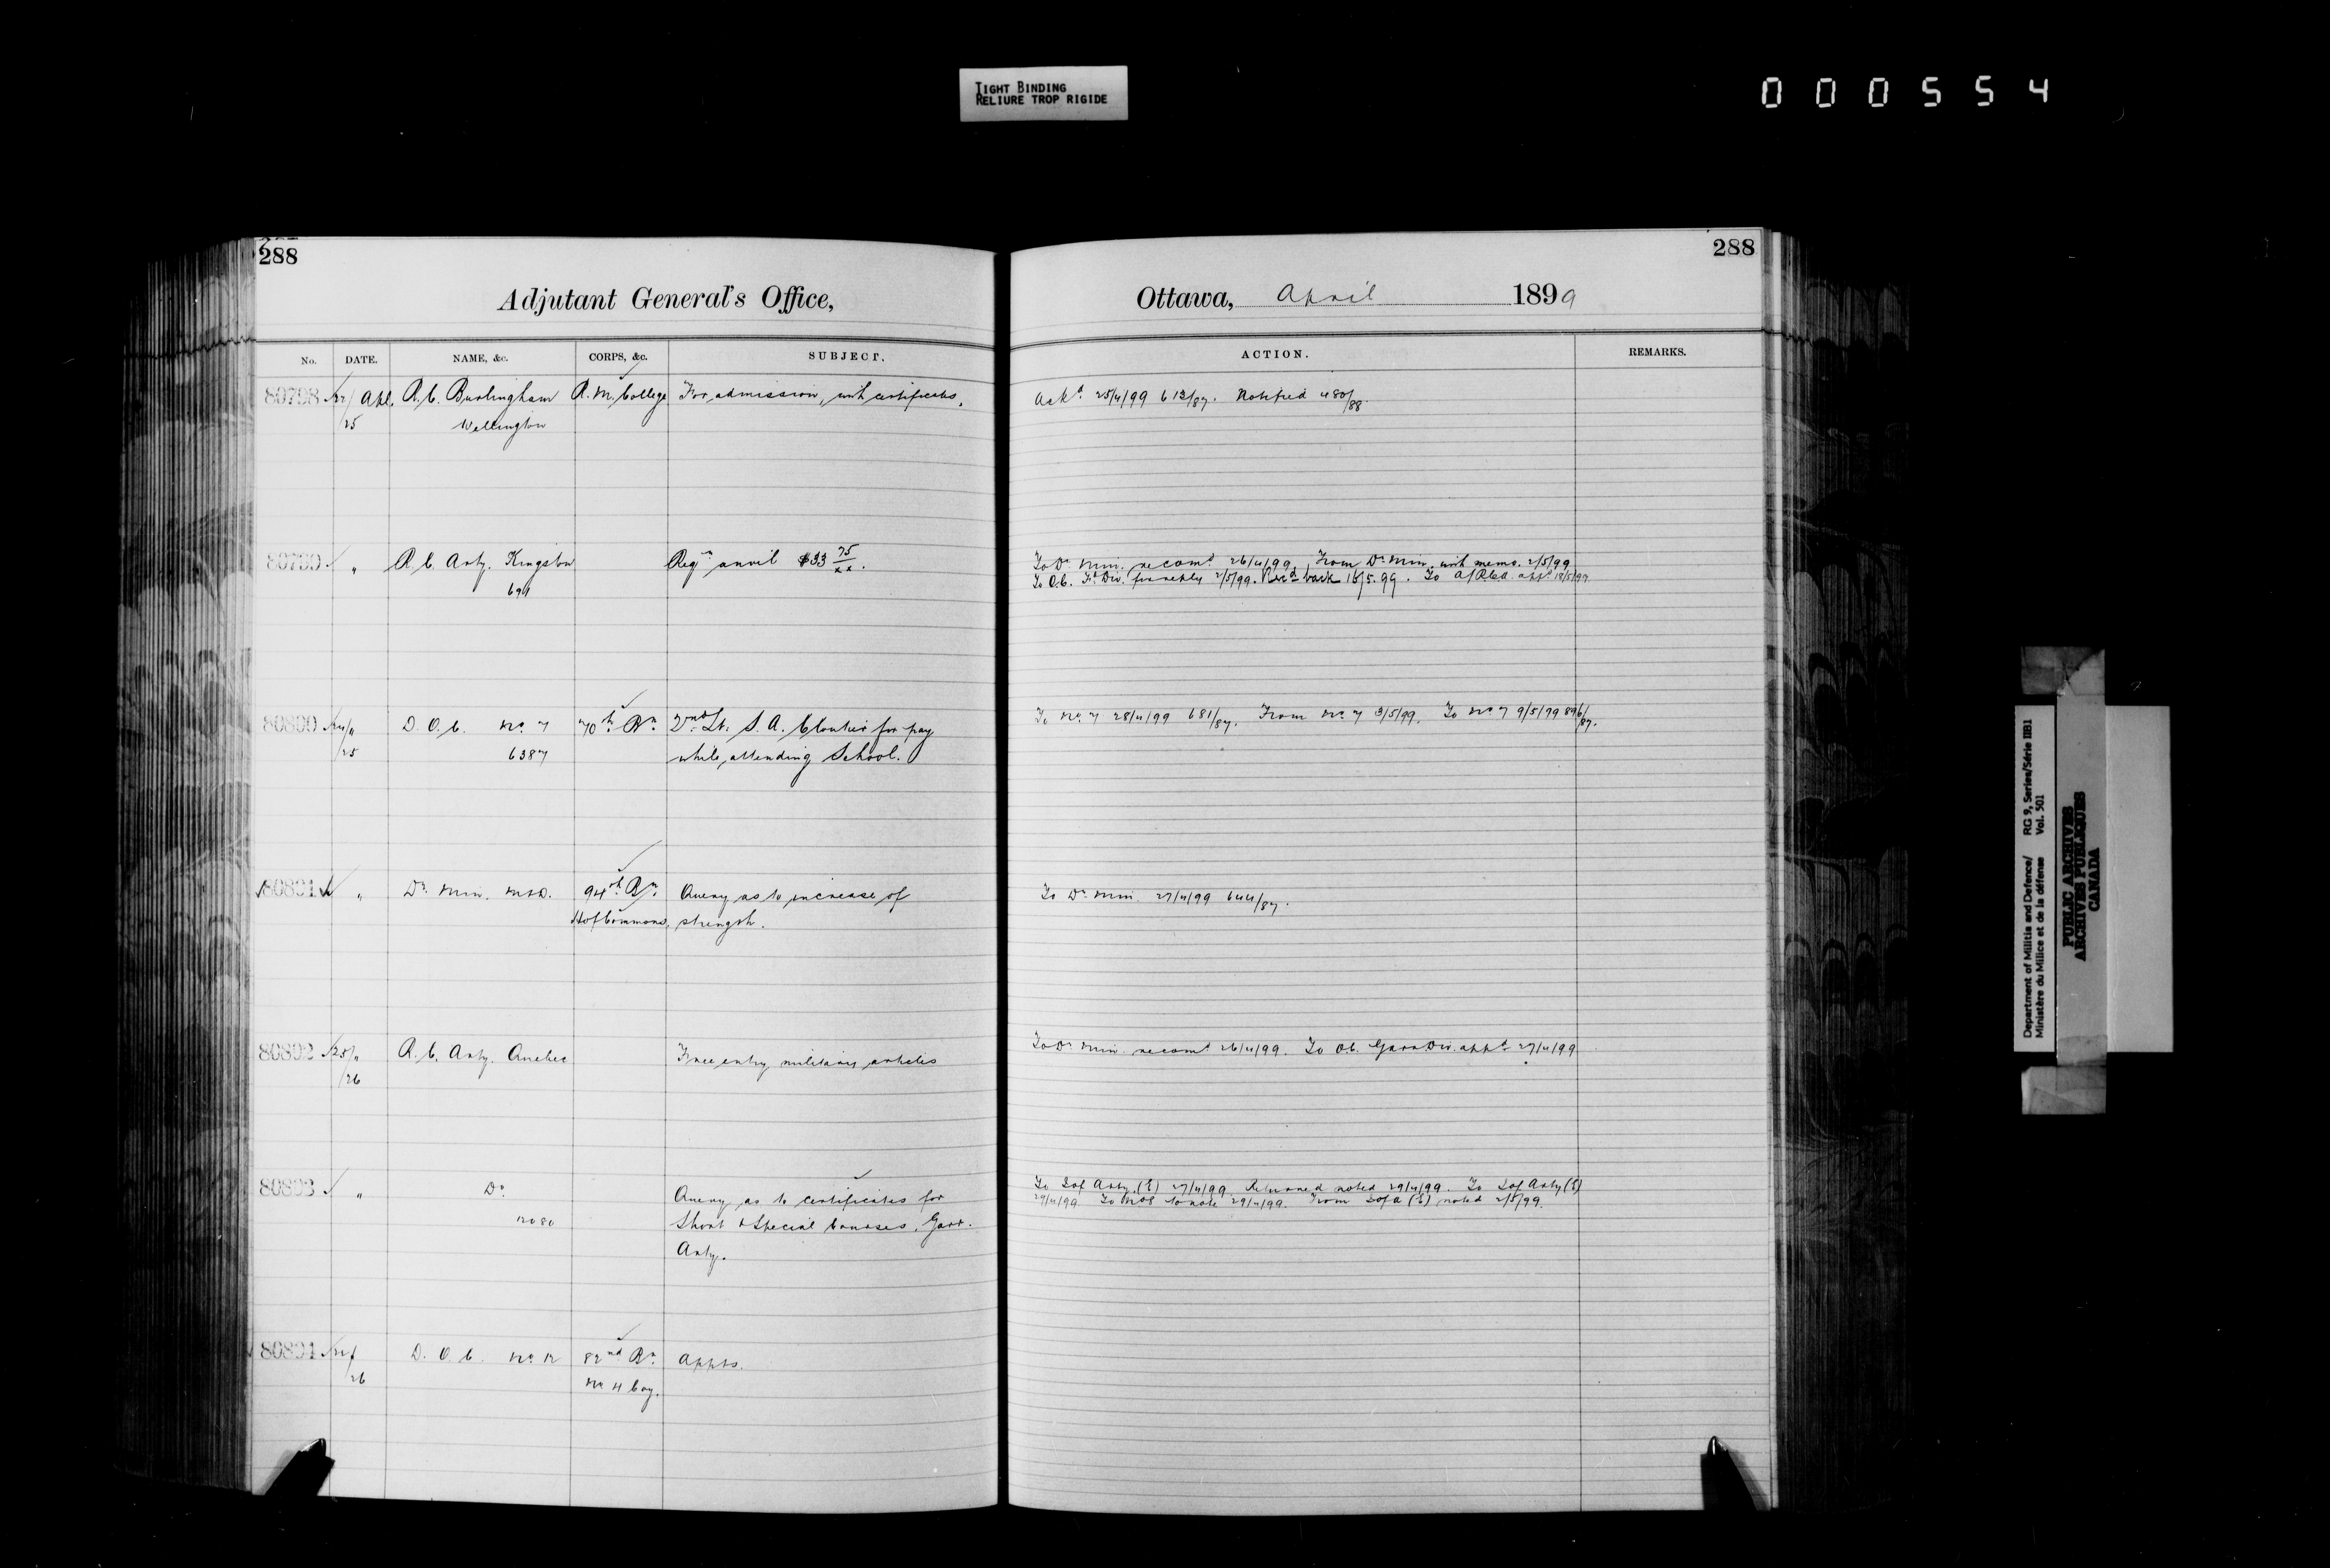 TIGHT BINDING
RELIURE TROP RIGIDE
000554
288
288
Adjutant General's Office,
Ottawa, April 1899
No. DATE. NAME, &c. CORPS, &c. SUBJECT. ACTION. REMARKS.
80798 22/ Apl. R.C. Burlingham R.M. College For admission, with certificates.
25 Wellington
Ackd. 25/4/99 612/87. Notified 480/88.
80799 " R.C. Arty. Kingston Reqn anvil $33 75/xx.
691
To Dr. Min. recomd 26/4/99. From Dr. Min. with memo. 2/5/99
To O.C. Fd Div. for reply 2/5/99. Recd back 16/5.99. To A/R.C.A. appd 18/5/99
80800 24/4 D.O.C. No. 7 70th Bn. 2nd Lt. S.A. Cloutier for pay
25 6387 while attending School.
To No. 7 28/4/99 681/87. From No. 7 3/5/99. To No. 7 9/5/99 896/87.
80801 " Dr. Min. M&D. 94th Bn. Query as to increase of
H of Commons, strength.
To Dr. Min. 27/4/99 644/87.
80802 25/4 R.C. Arty. Quebec Free entry military articles
/26
To Dr. Min. recomd 26/4/99. To O.C. Garr. Div. appd 27/4/99
80803 " Do. Query as to certificates for
Short & Special Courses, Garr.
Arty.
To I of Arty. (E) 27/4/99 Returned noted 29/4/99. To I of Arty (E)
29/4/99. To to note 29/4/99. From I of A (E) noted 2/5/99.
80804 D.O.C. No. 12 82nd Bn. Appts.
26 No 4 Coy.
Department of Militia and Defence/
Ministère du Milice et de la défense
RG 9, Series/Série IIB1
Vol. 501
PUBLIC ARCHIVES
ARCHIVES PUBLIQUES
CANADA